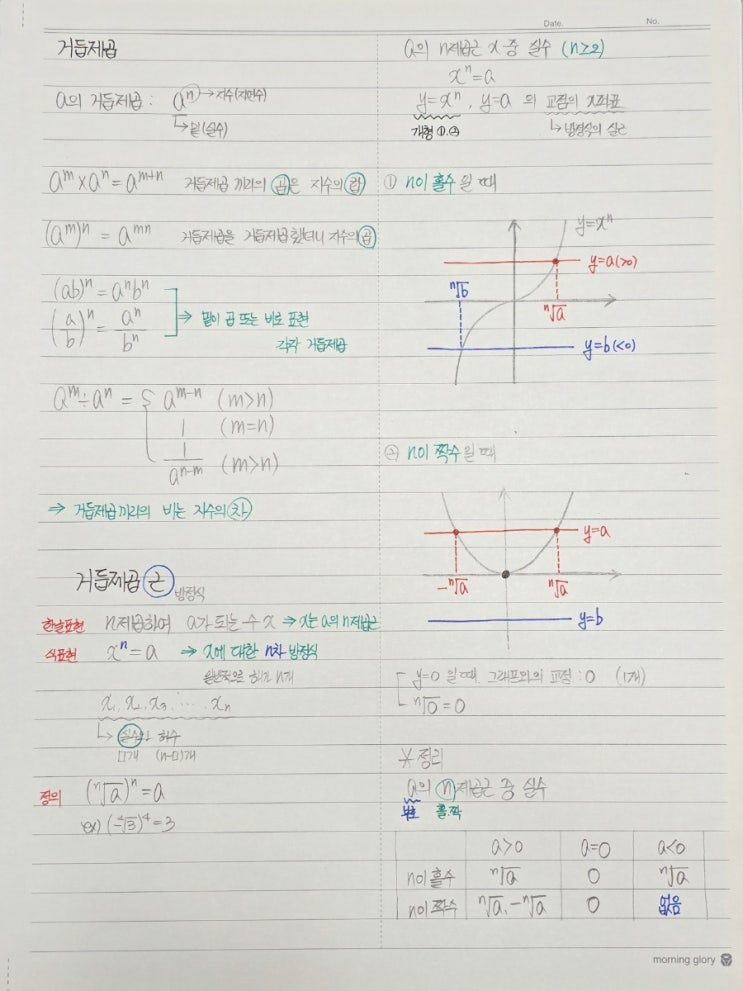 Date.
No.
거듭제곱
a의 거듭제곱 : aⁿ → 지수(자연수)
↳ 밑(실수)
aᵐ × aⁿ = aᵐ⁺ⁿ 거듭제곱 끼리의 곱은 지수의 합
(aᵐ)ⁿ = aᵐⁿ 거듭제곱을 거듭제곱 했더니 지수의 곱
(ab)ⁿ = aⁿbⁿ
(a/b)ⁿ = aⁿ/bⁿ ⇒ 밑이 곱 또는 비로 표현
각각 거듭제곱
aᵐ ÷ aⁿ = { aᵐ⁻ⁿ (m>n)
1 (m=n)
1/aⁿ⁻ᵐ (m>n)
⇒ 거듭제곱끼리의 비는 지수의 차
거듭제곱 근
방정식
한글표현 n제곱하여 a가 되는 수 x → x는 a의 n제곱근
식표현 xⁿ = a → x에 대한 n차 방정식
일반적으로 해가 n개
x₁, x₂, x₃, ⋯ xₙ
↳ 실수와 허수
□개 (n-□)개
정의 (ⁿ√a)ⁿ = a
ex) (-⁴√3)⁴ = 3
a의 n제곱근 x 중 실수 (n≥2)
xⁿ = a
y=xⁿ, y=a 의 교점의 x좌표
개형 ①,② ↳ 방정식의 실근
① n이 홀수 일 때
y=xⁿ
y=a(>0)
ⁿ√b
ⁿ√a
y=b(<0)
② n이 짝수 일 때
y=a
-ⁿ√a ⁿ√a
y=b
y=0 일 때, 그래프와의 교점 : 0 (1개)
ⁿ√0 = 0
* 정리
a의 n제곱근 중 실수
부호 홀.짝
a>0 a=0 a<0
n이 홀수 ⁿ√a 0 ⁿ√a
n이 짝수 ⁿ√a, -ⁿ√a 0 없음
morning glory